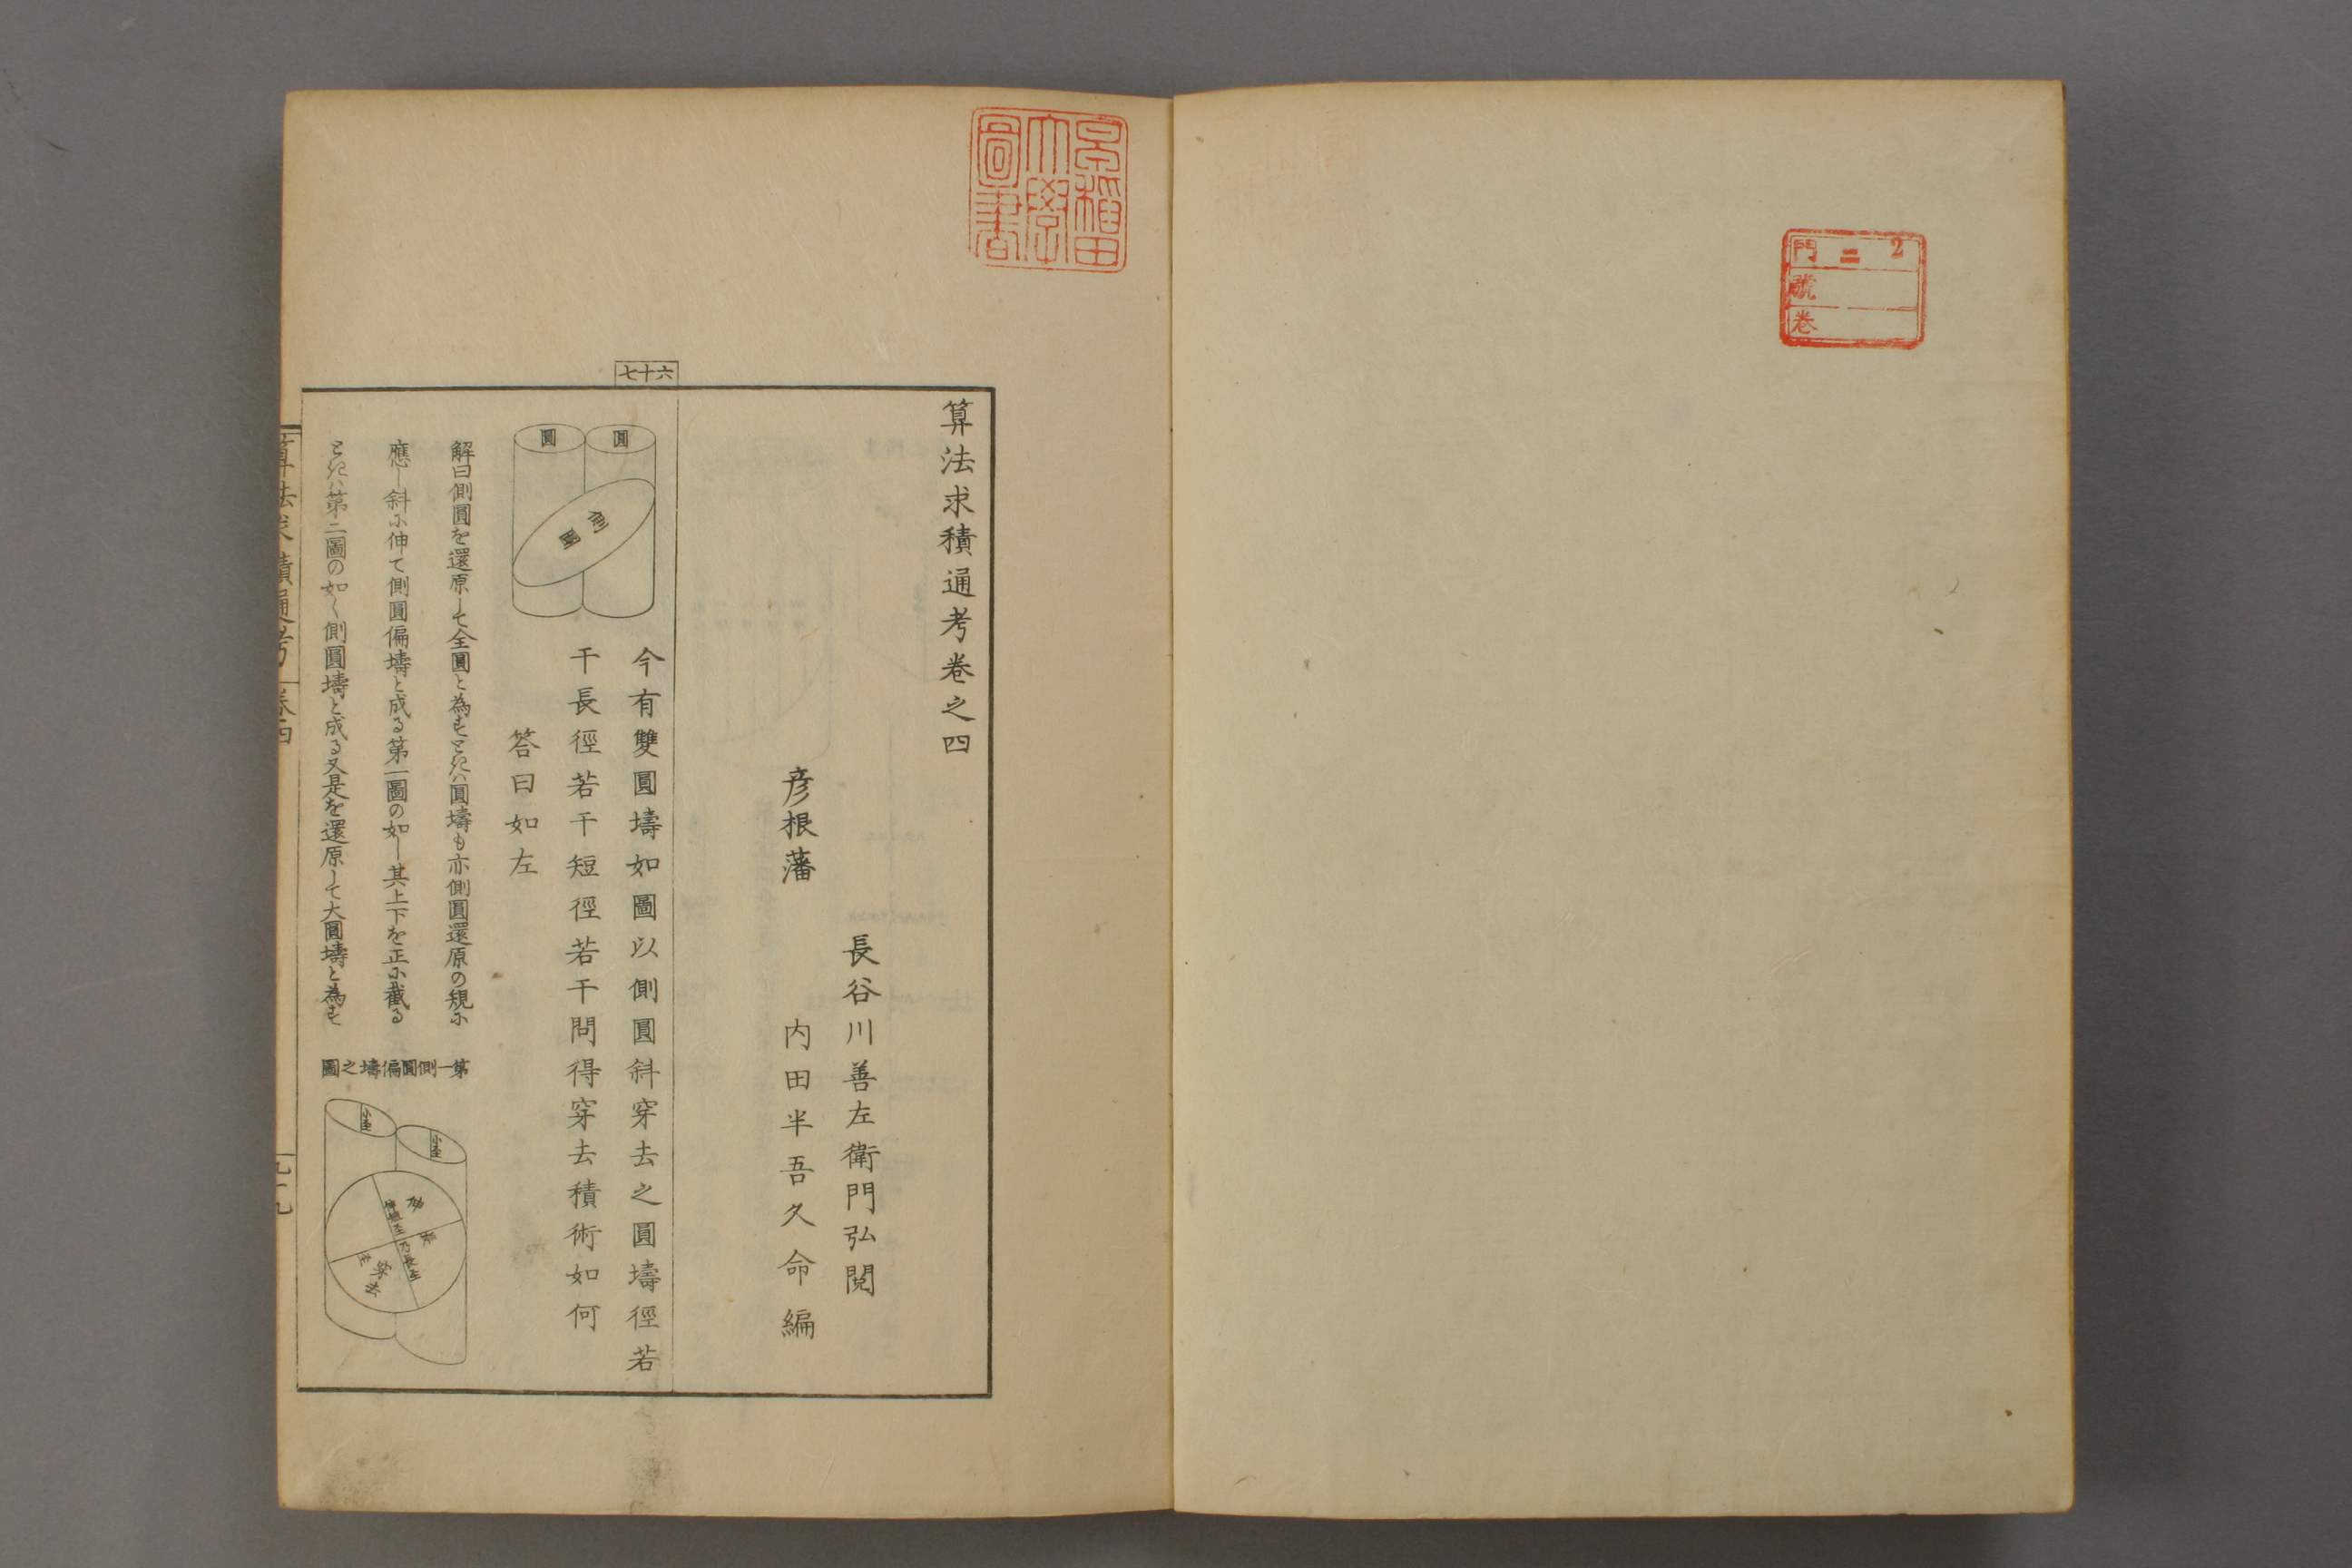 門 二 2
號
卷
早稲田
大學
圖書
算法求積通考卷之四
長谷川善左衛門弘閱
彦根藩 内田半吾久命編
七十六
圓 圓
側圓
今有雙圓壔如圖以側圓斜穿去之圓壔徑若
干長徑若干短徑若干問得穿去積術如何
答曰如左
解曰側圓を還原して全圓と為すときハ圓壔も亦側圓還原の規に
應し斜に伸て側圓偏壔と成る第一圖の如し其上下を正に截る
ときハ第二圖の如く側圓壔と成る又是を還原して大圓壔と為す
第一側圓偏壔之圖
小圣
小圣
算法求積通考 卷四